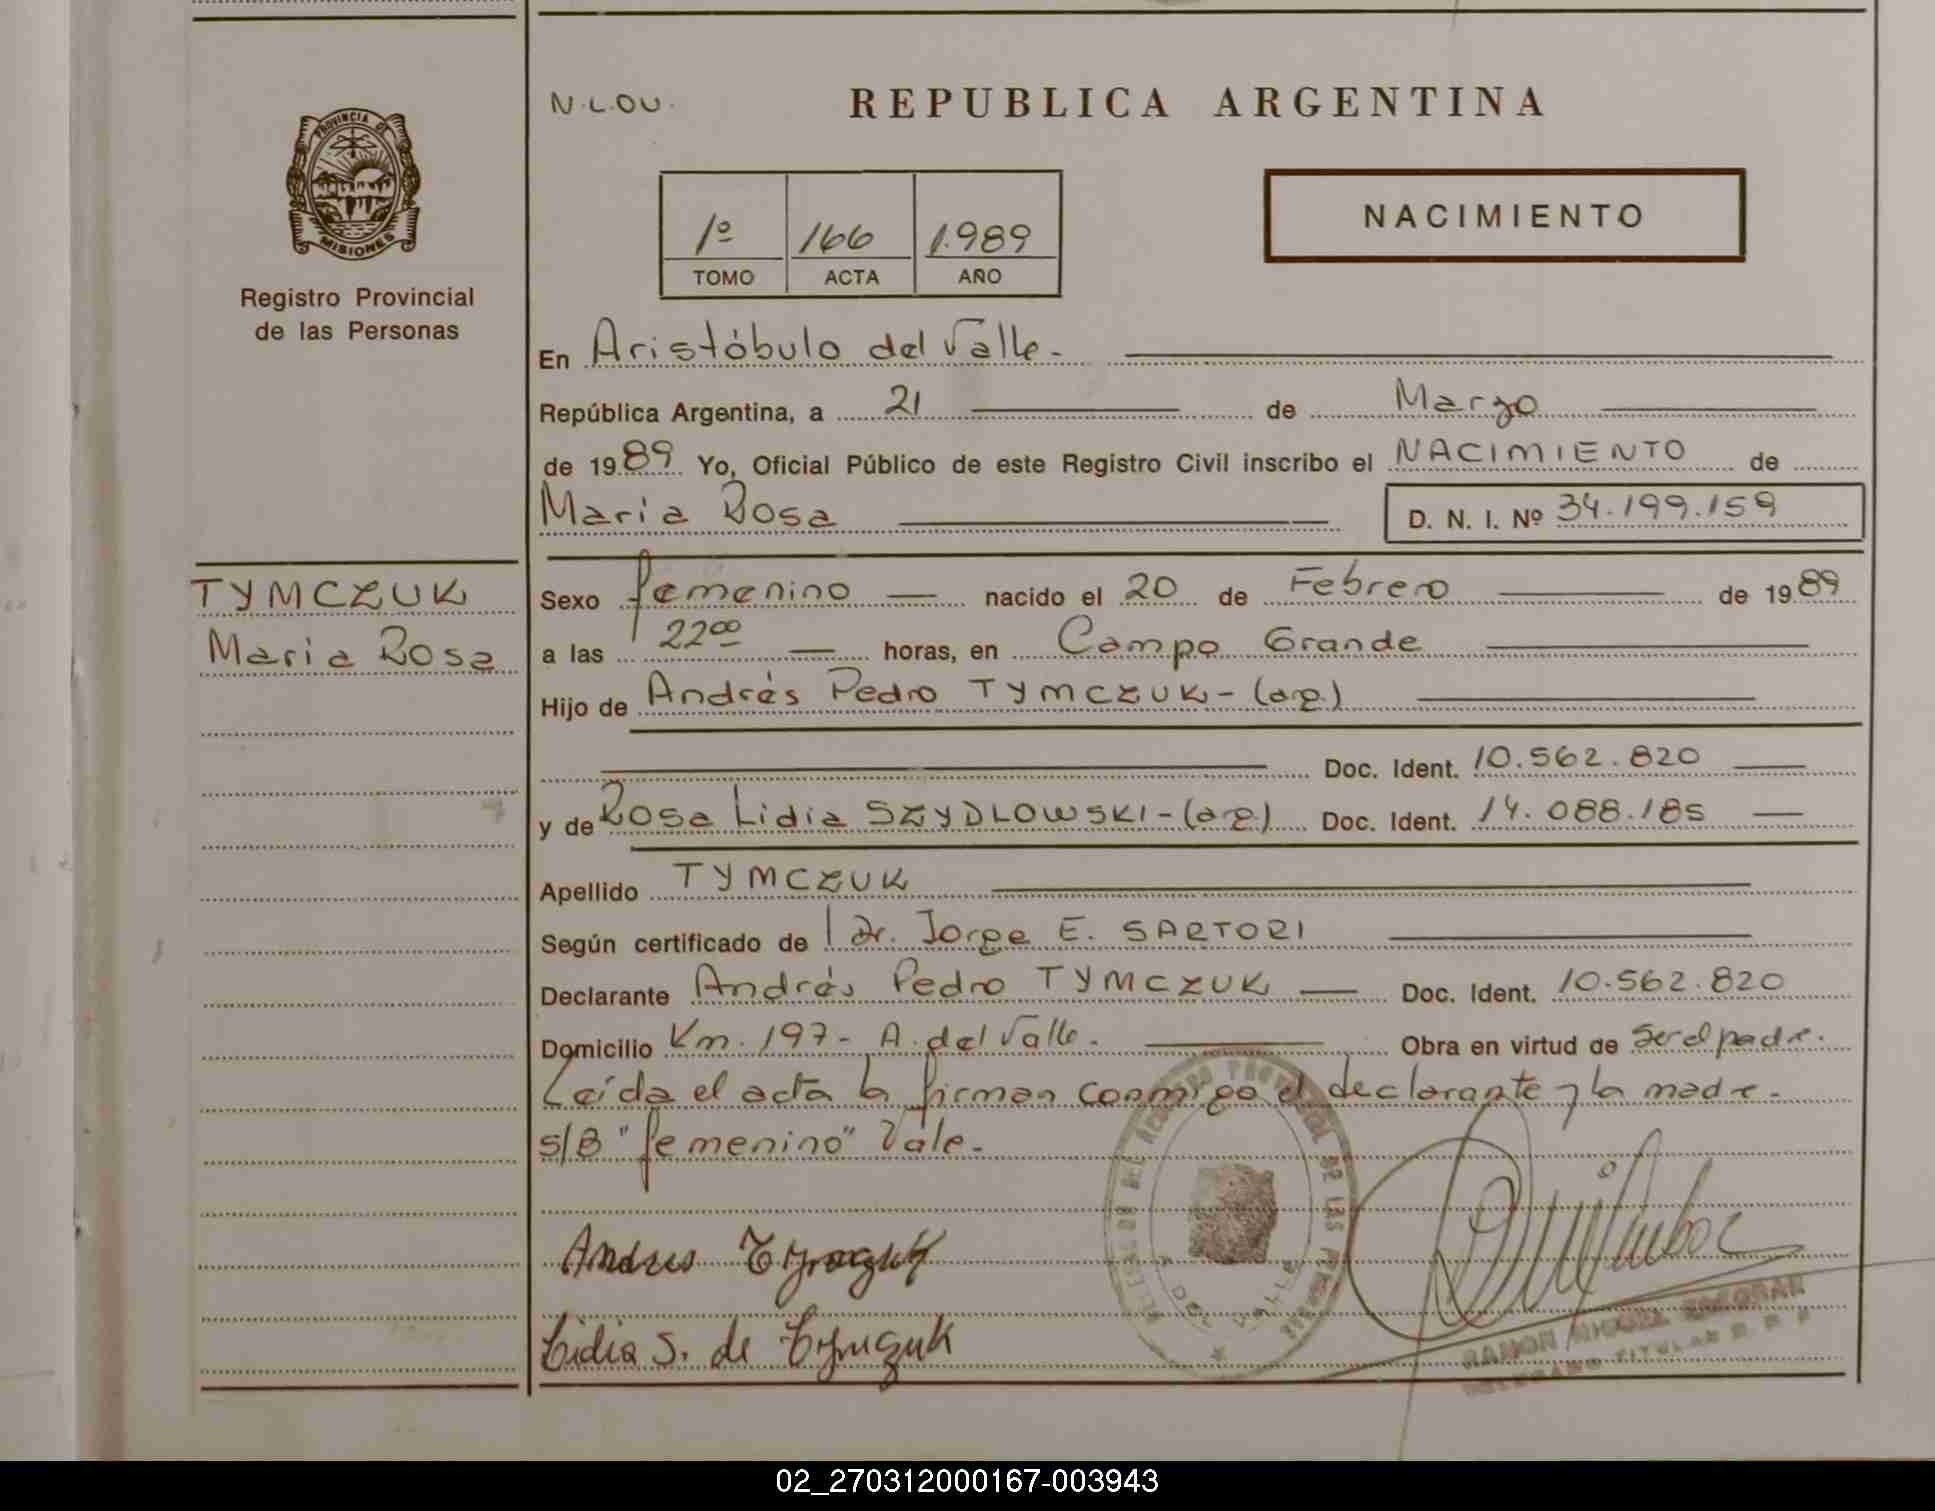 N.L.OU.
REPUBLICA ARGENTINA
PROVINCIA DE
MISIONES
Registro Provincial
de las Personas
1º 166 1.989
TOMO ACTA AÑO
NACIMIENTO
En Aristóbulo del Valle.-
República Argentina, a 21 de Marzo
de 1989 Yo, Oficial Público de este Registro Civil inscribo el NACIMIENTO de
Maria Rosa D. N. I. Nº 34.199.159
TYMCZUK
Maria Rosa
Sexo femenino nacido el 20 de Febrero de 1989
a las 22⁰⁰ horas, en Campo Grande
Hijo de Andrés Pedro TYMCZUK - (arg.)
Doc. Ident. 10.562.820
y de Rosa Lidia SZYDLOWSKI - (arg.) Doc. Ident. 14.088.185
Apellido TYMCZUK
Según certificado de Dr. Jorge E. SARTORI
Declarante Andrés Pedro TYMCZUK Doc. Ident. 10.562.820
Domicilio Km. 197 - A. del Valle. Obra en virtud de ser el padre.
Leída el acta la firman conmigo el declarante y la madre.
S/B "femenino" Vale.-
Andres Tymczuk
Lidia S. de Tymczuk
A. DEL VALLE
RAMON MIGUEL
TITULAR
02_270312000167-003943